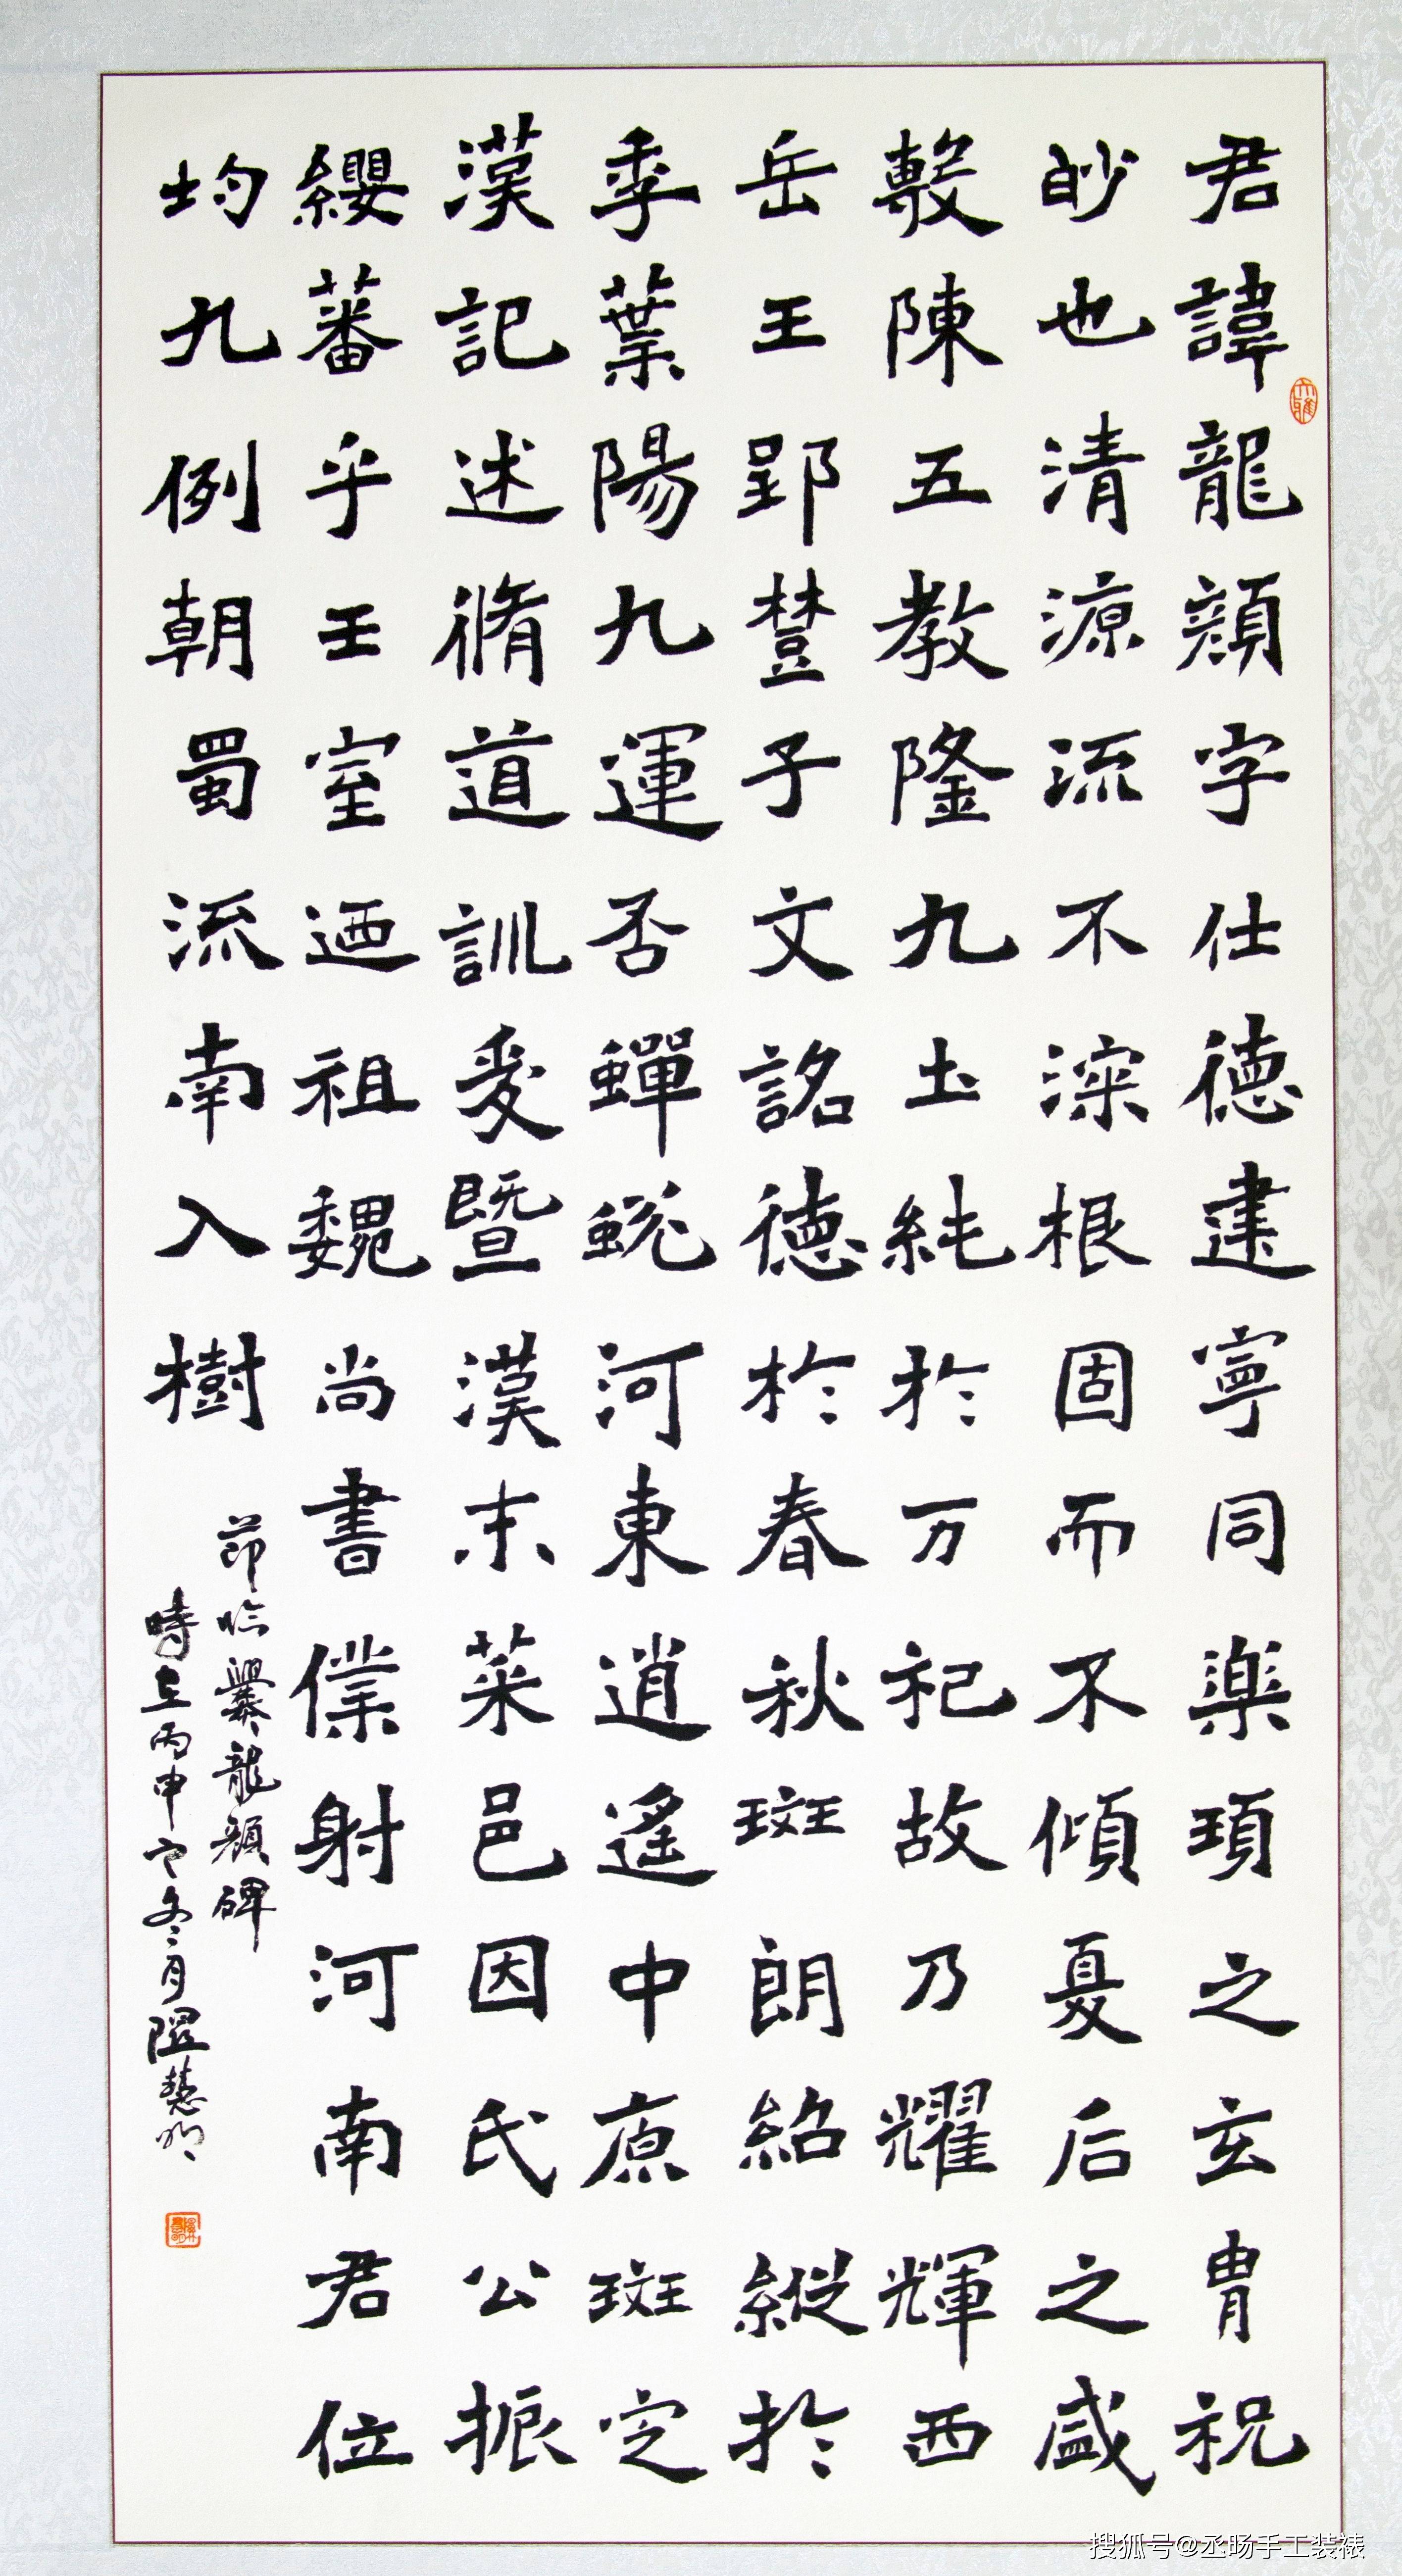 君諱龍顏字仕德建寧同樂項之玄冑祝
眇也清源流不深根固而不傾夏后之盛
敷陳五教隆九土純於万祀故乃耀輝西
岳王郢楚子文詺德於春秋斑朗紹縱於
季葉陽九運否蟬蛻河東逍遙中原斑定
漢記述脩道訓爰暨漢末菜邑因氏公振
纓蕃乎王室迺祖魏尚書僕射河南君位
均九例朝蜀流南入樹
節临爨龍顏碑
時在丙申之冬月 慧明
搜狐号@丞旸手工装裱